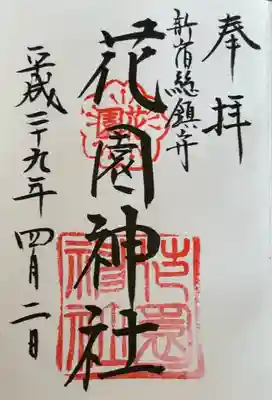 奉拝
新宿総鎮守
花園神社
平成二十九年四月二日
花園
花園神社